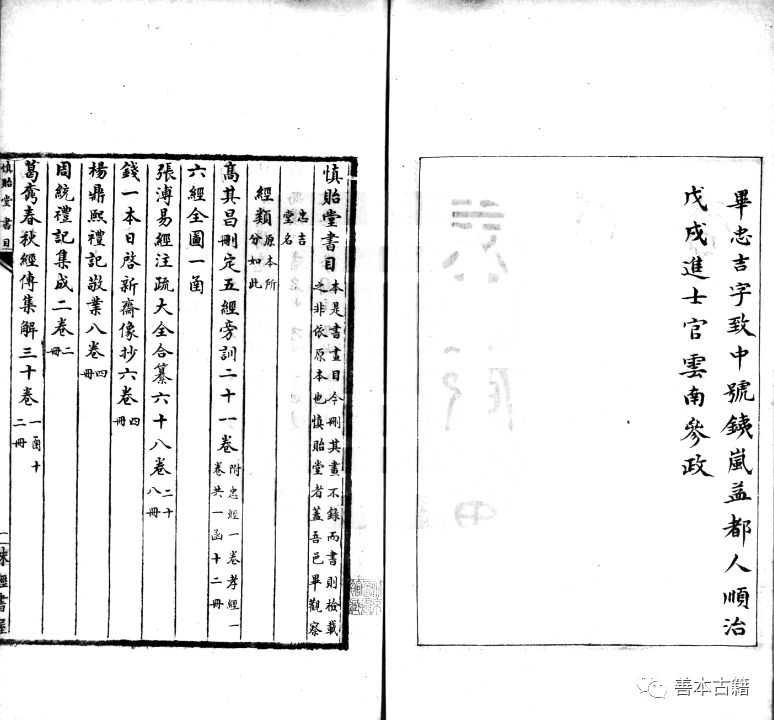 畢忠吉字致中號鐵嵐益都人順治
戊戌進士官雲南參政
慎貽堂書目
本是書畫目今刪其畫不錄而書則檢載
之非依原本也慎貽堂者蓋吾邑畢觀察
忠吉
堂名
經類
原本所
分如此
高其昌刪定五經旁訓二十一卷
附忠經一卷孝經一
卷共一函十二冊
六經全圖一函
張溥易經注疏大全合纂六十八卷
二十
八冊
錢一本日啓新齋像抄六卷
四
冊
楊鼎熙禮記敬業八卷
四
冊
周統禮記集成二卷
二
冊
葛鼒春秋經傳集解三十卷
一函十
二冊
慎貽堂書目
一
經書屋
善本古籍